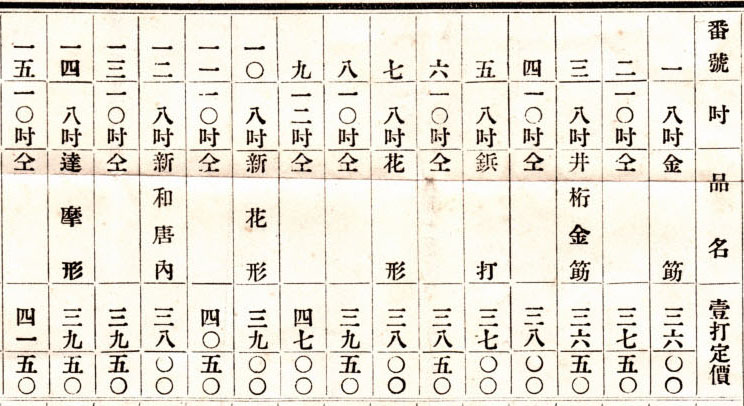 番號 吋 品名 壹打定價
一 八吋 金筋 三六〇〇
二 一〇吋 仝 三七五〇
三 八吋 井桁金筋 三六五〇
四 一〇吋 仝 三八〇〇
五 八吋 鋲打 三七〇〇
六 一〇吋 仝 三八五〇
七 八吋 花形 三八〇〇
八 一〇吋 仝 三九五〇
九 一二吋 仝 四七〇〇
一〇 八吋 新花形 三九〇〇
一一 一〇吋 仝 四〇五〇
一二 八吋 新和唐內 三八〇〇
一三 一〇吋 仝 三九五〇
一四 八吋 達摩形 三九五〇
一五 一〇吋 仝 四一五〇